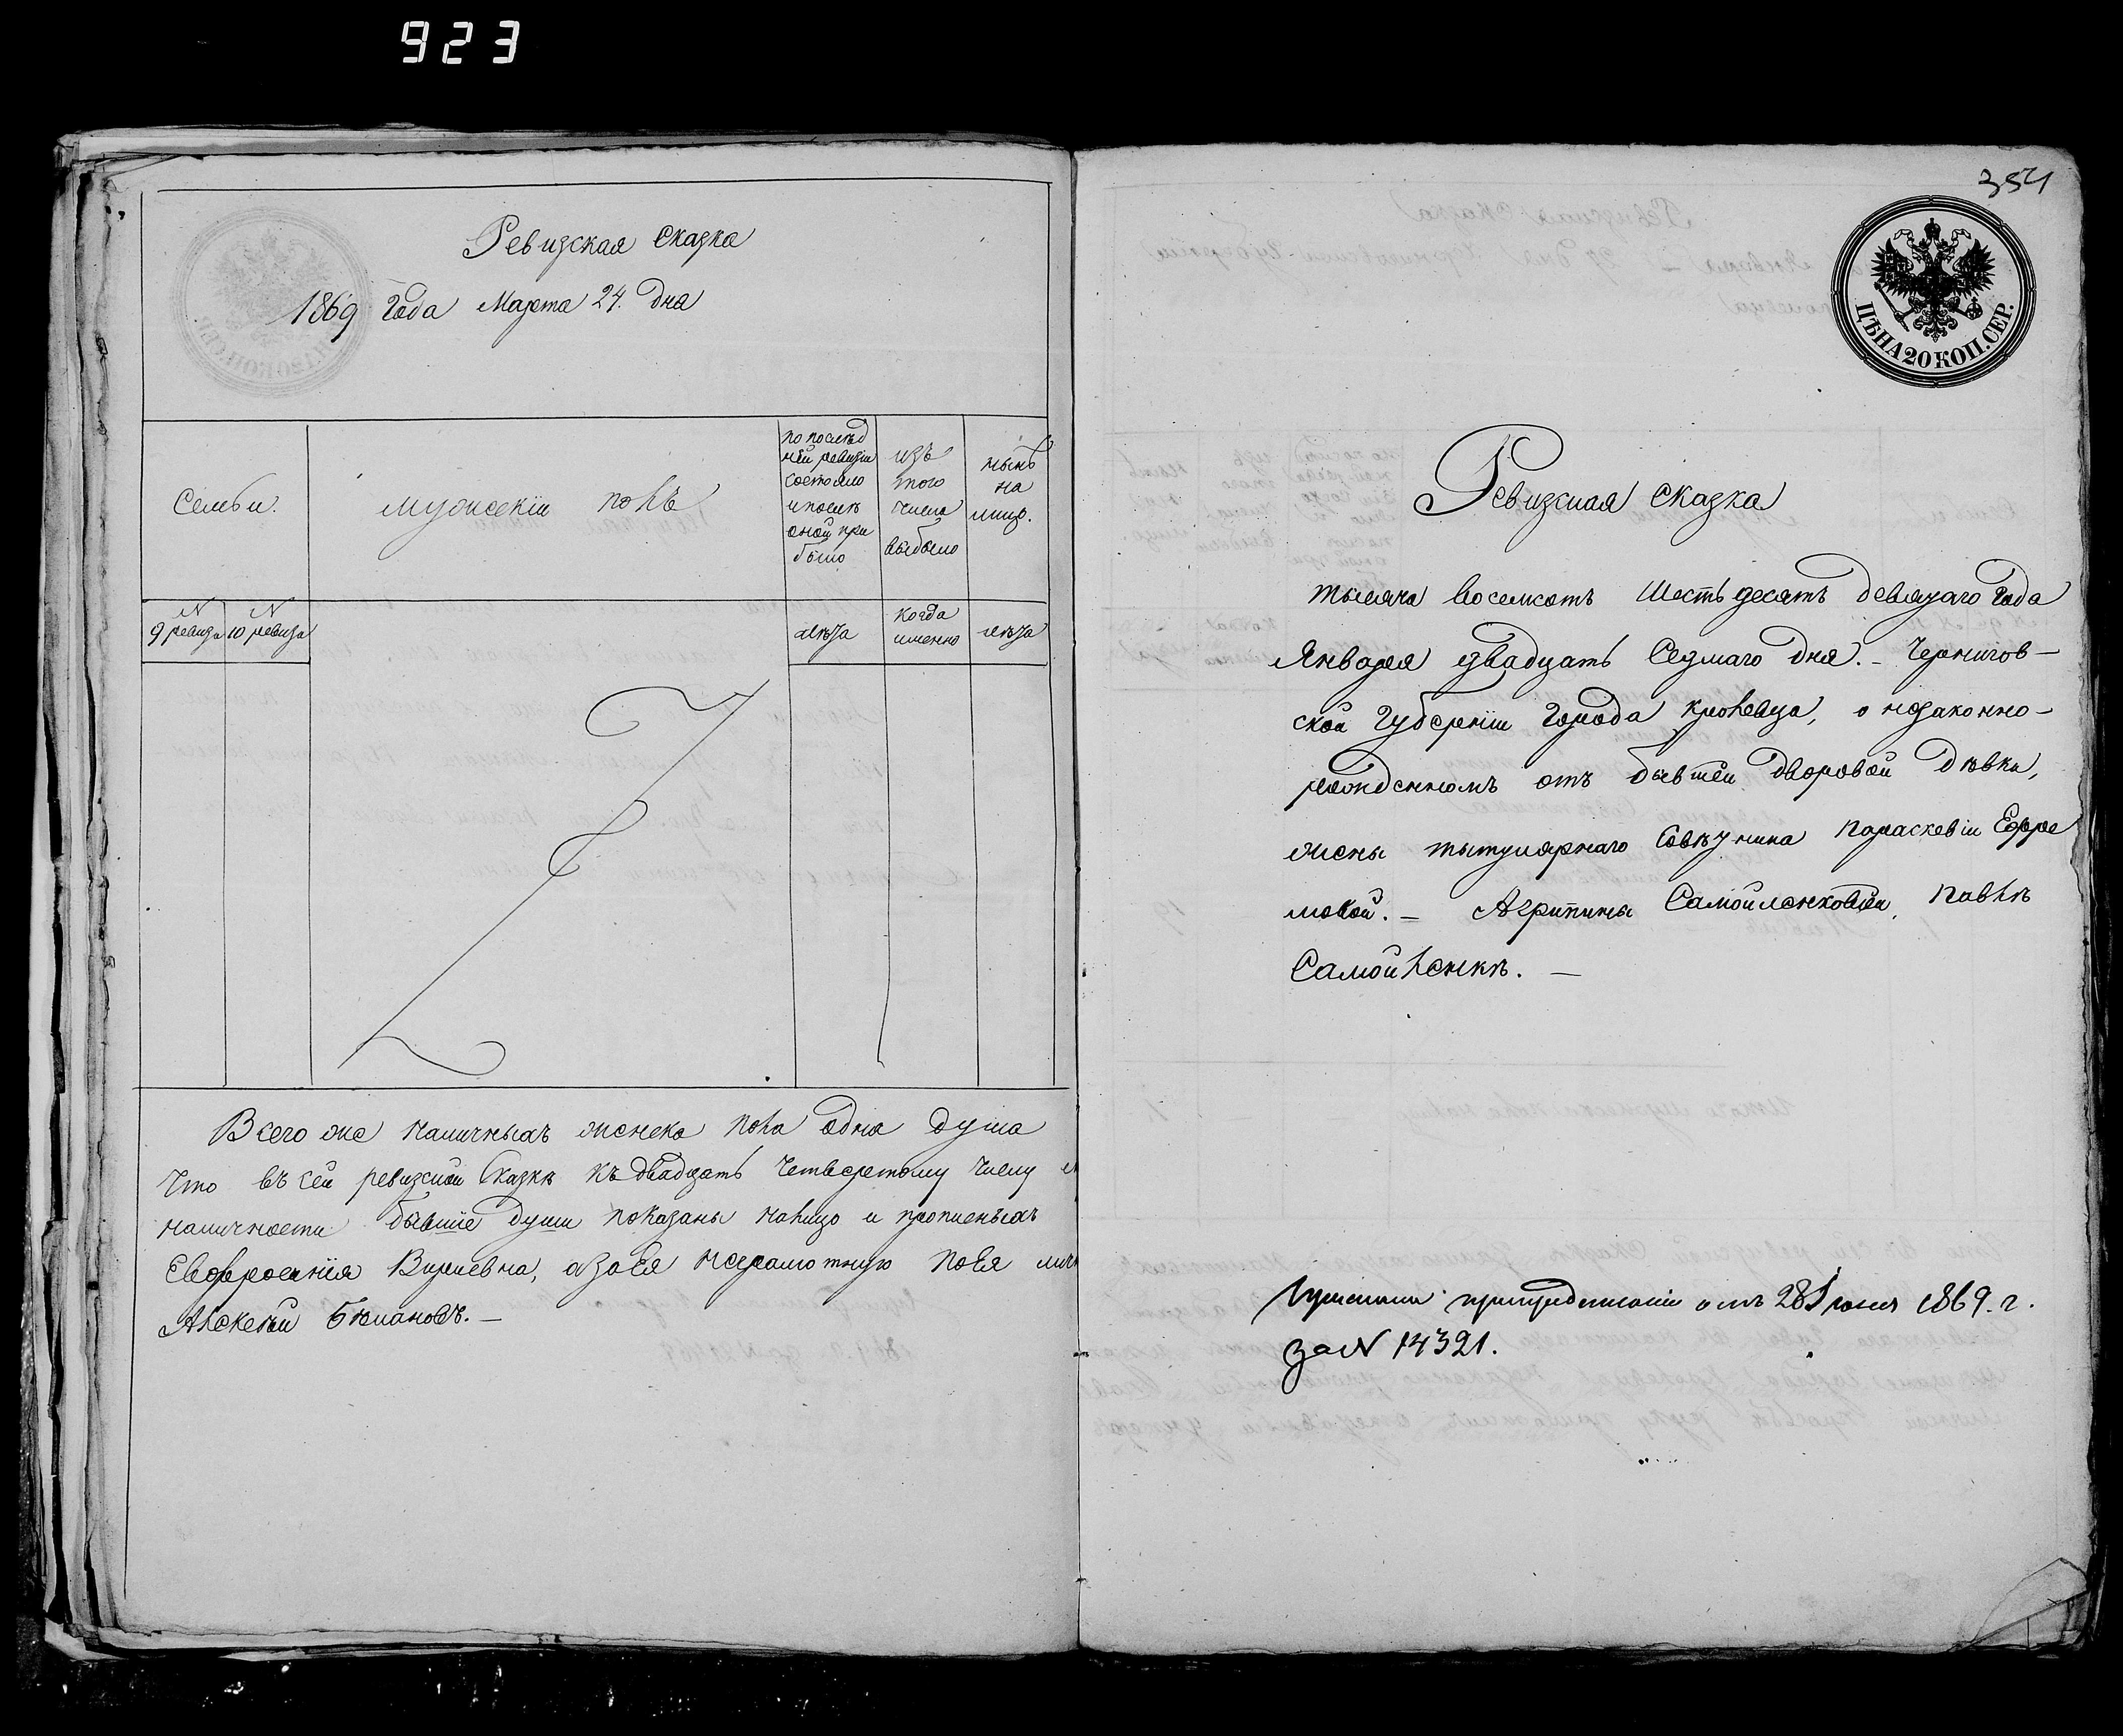 923
Ревизская Сказка
1869 года Марта 24. дня
Семьи.
мужескій полъ
по послѣд
ней ревизіи
состояло
и послѣ
оной при
было
изъ
того
числа
выбыло
нынѣ
на
лицо.
N
9 ревизіи
N
10 ревизіи
лѣта
когда
именно
лѣта
Всего же наличныхъ женска пола одна душа
Что въ сей ревизской Сказкѣ къ двадцать четвертому числу
наличности бывшіе души показаны налицо и прописныхъ
нѣтъ
Евфросинія Вириевна, а за Ея неграмотную по Ея
Алексѣй Бѣлановъ. —
354
ЦѢНА 20 КОП. СЕР.
Ревизская Сказка
тысяча восемсотъ Шестьдесятъ девятаго года
Января двадцать Седмаго дня. – Чернигов–
ской Губерніи города Кролевца, о незаконно–
рожденномъ отъ бывшей дворовой дѣвки,
жены титулярнаго Совѣтника Параскевіи Ефре
мовой. – Агрипины Самойленковой, Павлѣ
Самойленкѣ. —
при предписаніи отъ 28 Іюня 1869. г.
за N 14321.